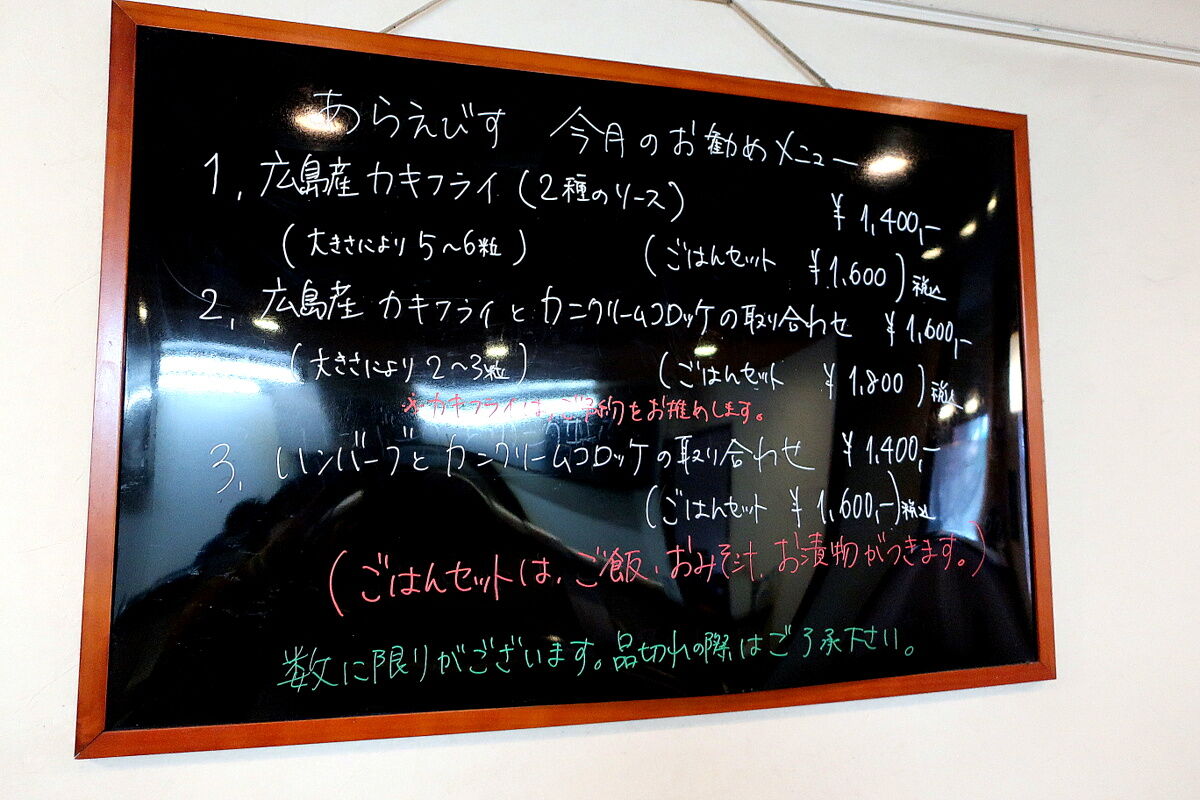 あらえびす 今月のお勧めメニュー
1, 広島産 カキフライ (2種のソース) ¥1,400,-
(大きさにより 5〜6粒) (ごはんセット ¥1,600) 税込
2, 広島産 カキフライとカニクリームコロッケの取り合わせ ¥1,600,-
(大きさにより 2〜3粒) (ごはんセット ¥1,800) 税込
※カキフライは、ご予約をお推めします。
3, ハンバーグとカニクリームコロッケの取り合わせ ¥1,400,-
(ごはんセット ¥1,600,-) 税込
(ごはんセットは、ご飯、おみそ汁、お漬物がつきます。)
数に限りがございます。品切れの際はご了承下さい。